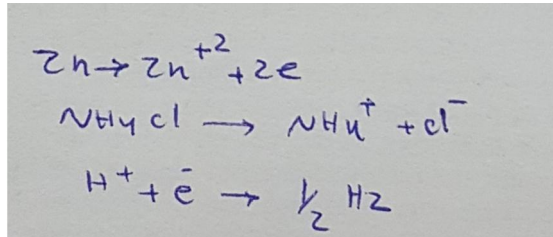 Zn → Zn⁺² + 2e
NH4 Cl → NH4⁺ + Cl⁻
H⁺ + e⁻ → 1/2 H2